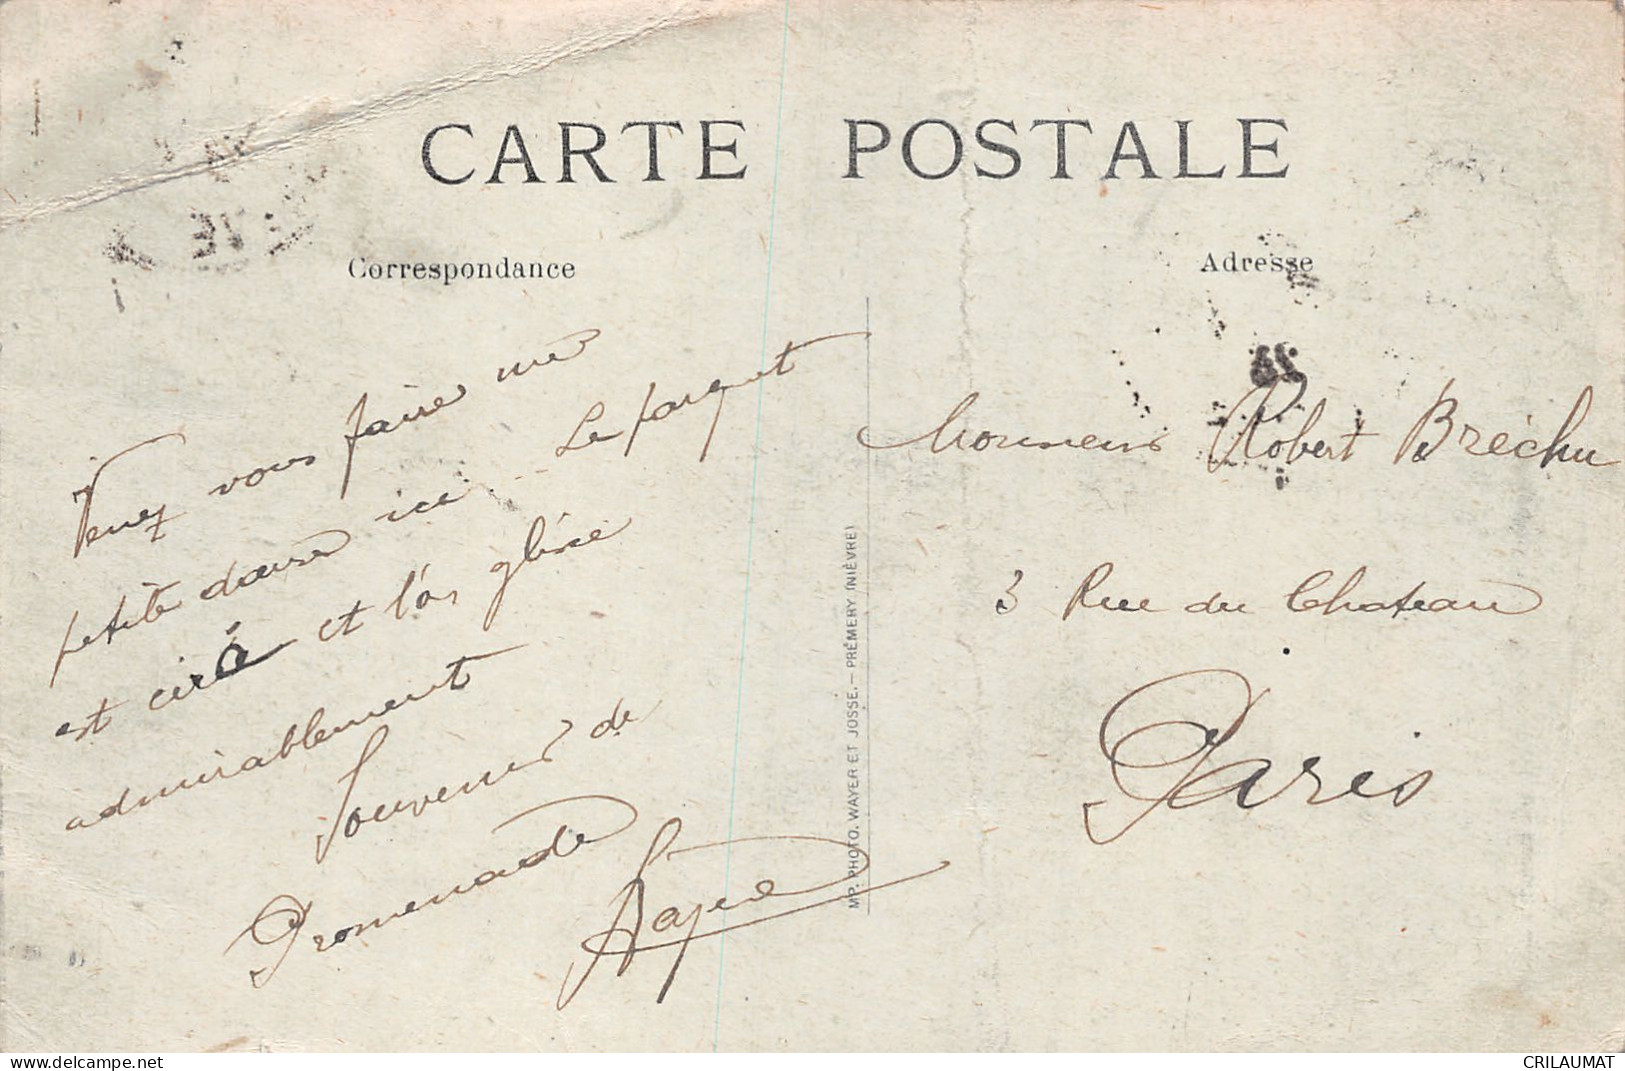 CARTE POSTALE
Correspondance
Adresse
Venez vous faire une
petite danse ici... Le parquet
est ciré et l'on glisse
admirablement
Souvenir de
Promenade
Monsieur Robert Bréchu
3 Rue du Chateau
Paris
MP. PHOTO. WAYER ET JOSSE. — PRÉMERY (NIÈVRE)
delcampe.net
CRILAUMAT